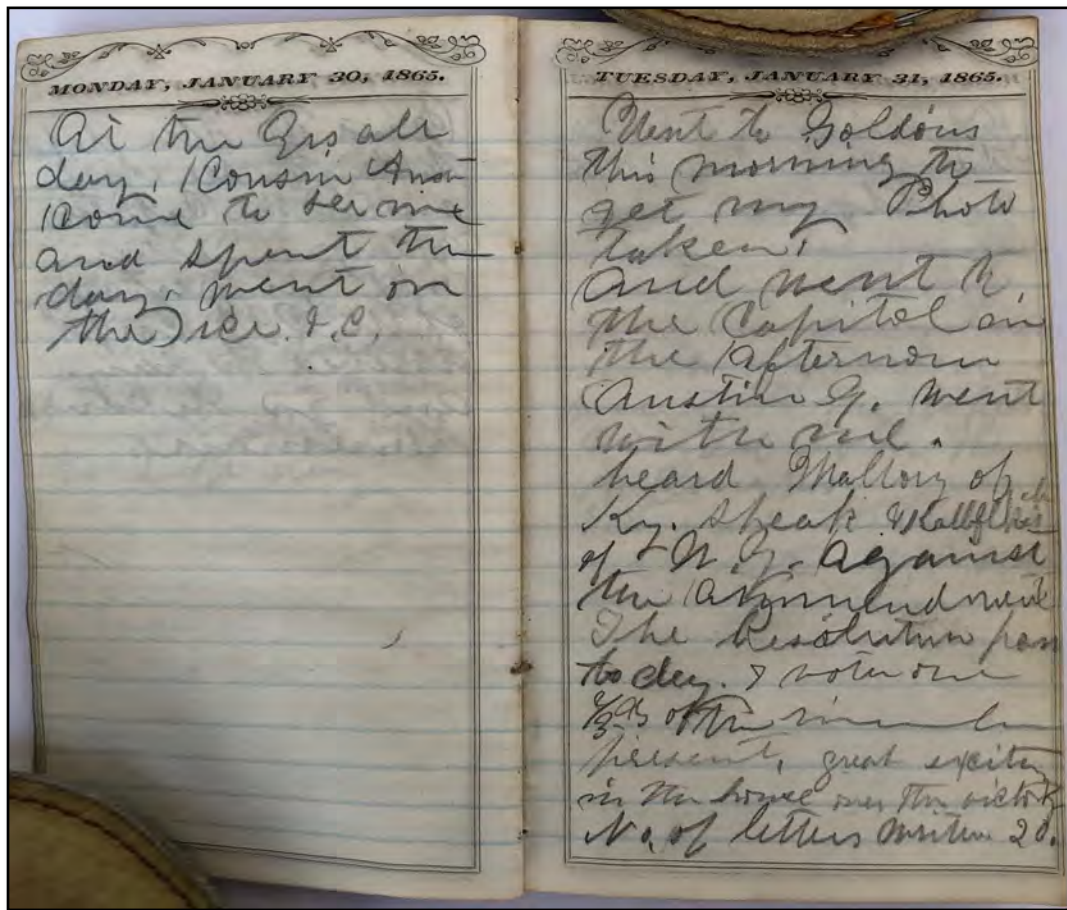 MONDAY, JANUARY 30, 1865.
At the Hs all
day. Cousin Aust
Come to see me
and spent the
day. went on
the ice. I.C.
TUESDAY, JANUARY 31, 1865.
Went to Goldins
this morning to
get my Photo
taken,
and went to
the Capitol in
the afternoon
Austin G. went
with me.
heard Mallory of
Ky. speak &
of N.Y. against
the Ammendment
The Resolution pass
to day. &
2/3 ds of the
present, great excite
in the house over the victory
No. of letters writen 20.